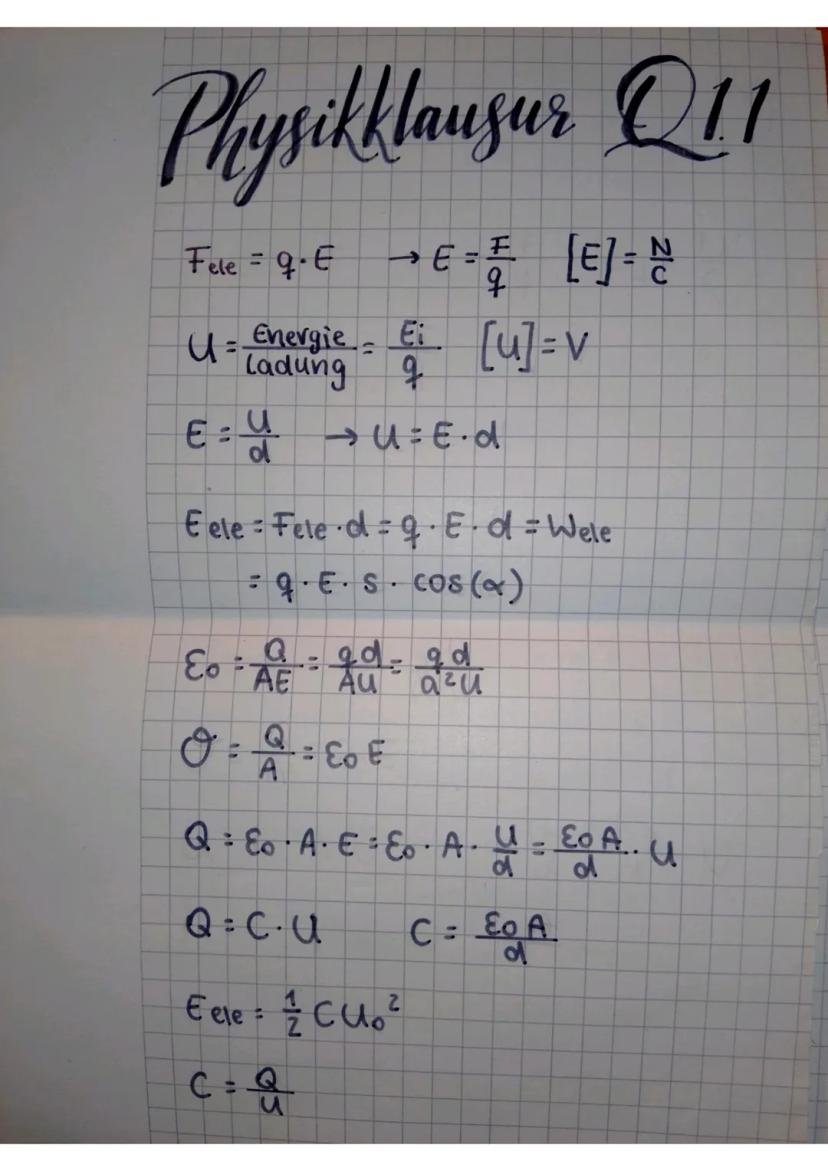 Physikklausur Q1.1
F_ele = q · E → E = F/q [E] = N/C
U = Energie/Ladung = Ei/q [U] = V
E = U/d → U = E · d
E_ele = F_ele · d = q · E · d = W_ele
= q · E · s · cos(α)
ε₀ = Q/AE = qd/AU = qd/a²U
σ = Q/A = ε₀ E
Q = ε₀ · A · E = ε₀ · A · U/d = ε₀A/d · U
Q = C · U C = ε₀A/d
E_ele = 1/2 C U₀²
C = Q/U